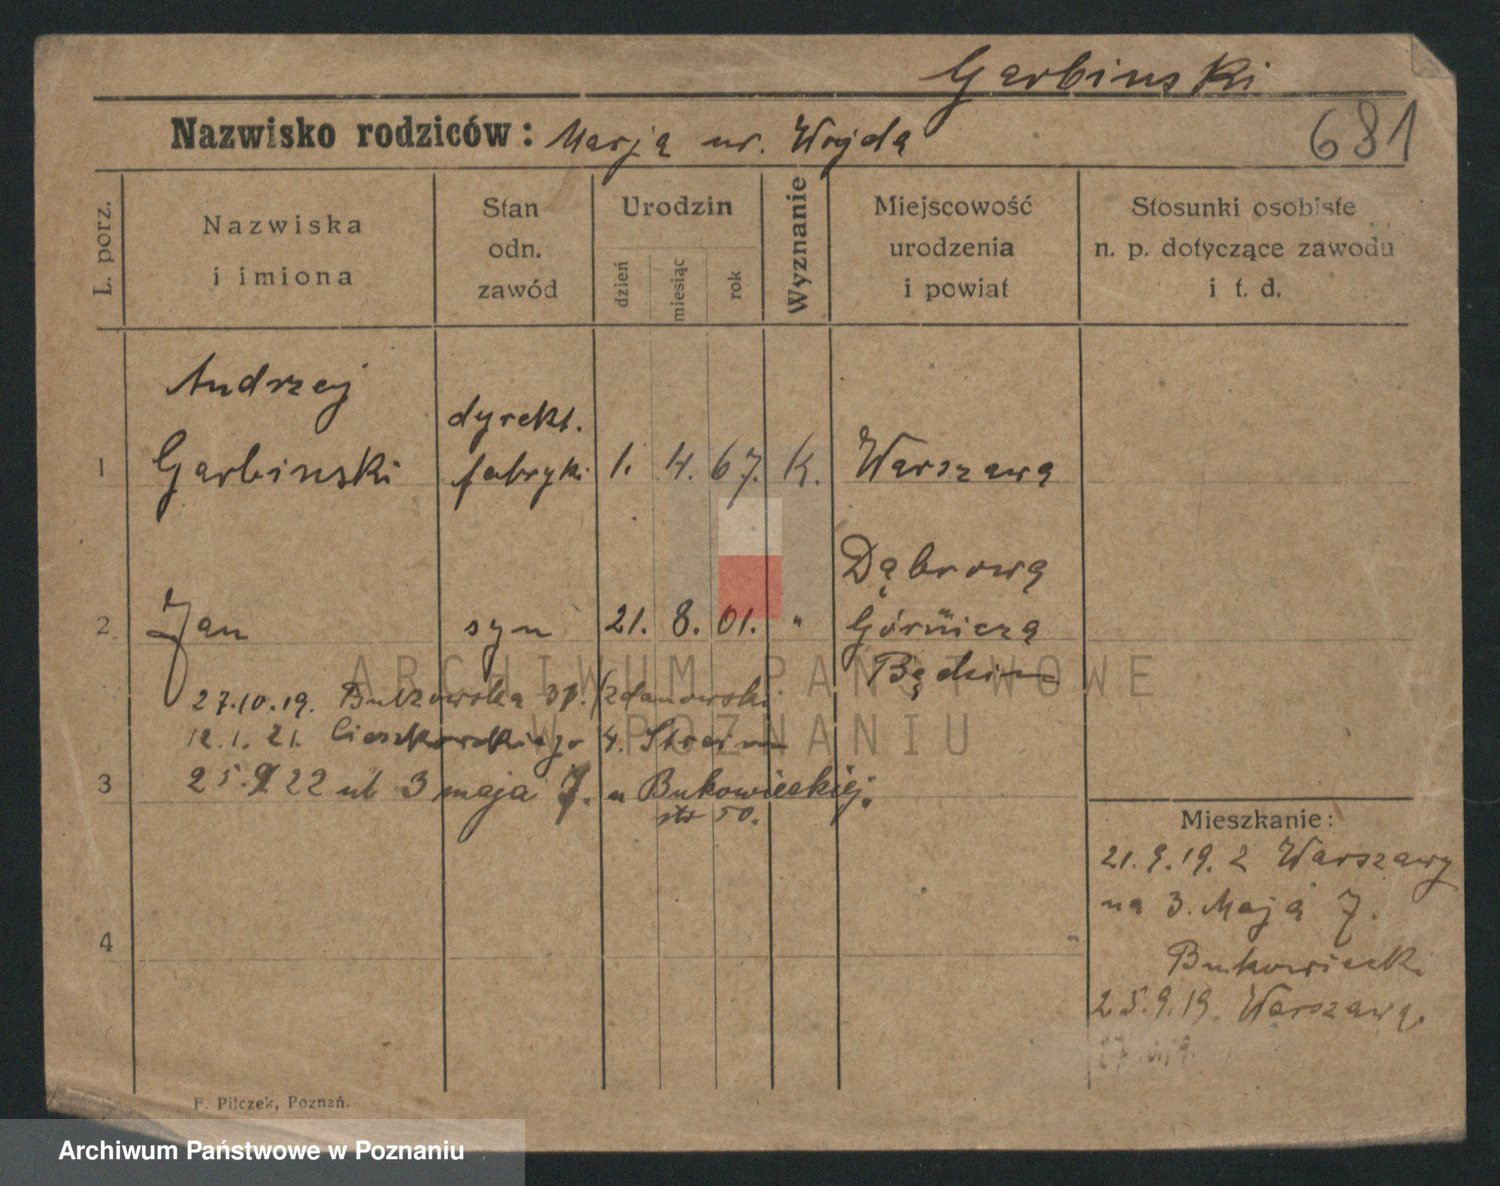 Garbinski
Nazwisko rodziców: Marja ur. Wojda
681
L. porz.
Nazwiska
i imiona
Stan
odn.
zawód
Urodzin
dzień
miesiąc
rok
Wyznanie
Miejscowość
urodzenia
i powiat
Stosunki osobiste
n. p. dotyczące zawodu
i t. d.
Andrzej
dyrekt.
1 Garbinski fabryki 1. 4. 67. K. Warszawa
Dąbrowa
2 Jan syn 21. 8. 01. " Górnicza
Będzin
27.10.19. Bukowska 31.
12.1.21. Cieszkowskiego 4.
3 25.9.22 ul 3 maja 7. u Bukowieckiej.
50.
4
Mieszkanie:
21.9.19. z Warszawy
na 3. Maja 7.
Bukowiecki
25.9.19. Warszawa.
F. Pilczek, Poznań.
ARCHIWUM PAŃSTWOWE
W POZNANIU
Archiwum Państwowe w Poznaniu